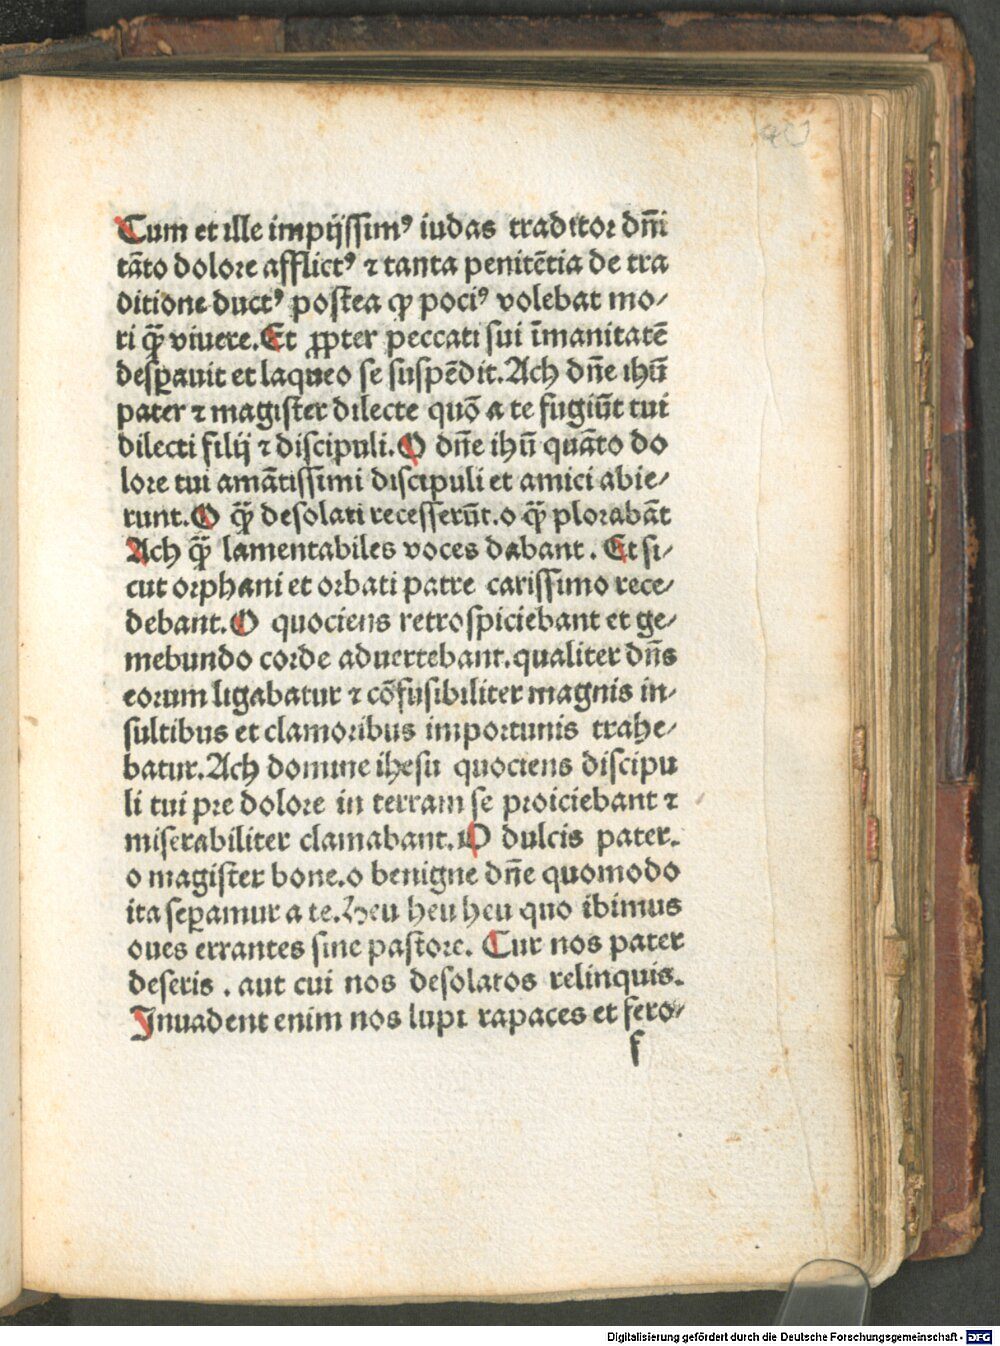 Cum et ille impijssimꝰ iudas traditor dn̄i
tāto dolore afflictꝰ ⁊ tanta penitētia de tra
ditione ductꝰ postea ꝙ pociꝰ volebat mo⸗
ri q̄ꝫ viuere. Et ꝓpter peccati sui īmanitatē
desꝑauit et laqueo se suspēdit. Ach dn̄e ihū
pater ⁊ magister dilecte quō a te fugiūt tui
dilecti filij ⁊ discipuli. O dn̄e ihū quāto do
lore tui amātissimi discipuli et amici abie⸗
runt. O q̄ꝫ desolati recesserūt. o q̄ꝫ plorabāt
Ach q̄ꝫ lamentabiles voces dabant. Et si⸗
cut orphani et orbati patre carissimo rece⸗
debant. O quociens retrospiciebant et ge⸗
mebundo corde aduertebant. qualiter dn̄s
eorum ligabatur ⁊ cōfusibiliter magnis in⸗
sultibus et clamoribus importunis trahe⸗
batur. Ach domine ihesu quociens discipu
li tui pre dolore in terram se proiciebant ⁊
miserabiliter clamabant. O dulcis pater.
o magister bone. o benigne dn̄e quomodo
ita seꝑamur a te. Heu heu heu quo ibimus
oues errantes sine pastore. Cur nos pater
deseris. aut cui nos desolatos relinquis.
Inuadent enim nos lupi rapaces et fero⸗
f
Digitalisierung gefördert durch die Deutsche Forschungsgemeinschaft - DFG